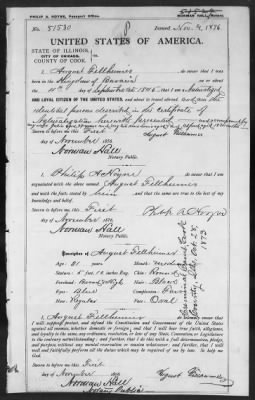 PHILIP A. HOYNE, Passport Office.
Issued Nov. 9, 1876
NORMAN HALL, Notary
No. 51530
UNITED STATES OF AMERICA.
STATE OF ILLINOIS,
CITY OF CHICAGO,
COUNTY OF COOK.
I, August Fellheimer do swear that I was
born in the Kingdom of Bavaria on
the 11th day of September 1845; that I am a Naturalized
AND LOYAL CITIZEN OF THE UNITED STATES, and about to travel abroad. And, am the
identical person described in the Certificate of
Naturalization herewith presented
Sworn to before me this First
day of November 1876
Norman Hall
Notary Public.
August Fellheimer
I, Philip A Hoyne do swear that I am
acquainted with the above named August Fellheimer
and with the facts stated by him and that the same are true to the best of my
knowledge and belief.
Sworn to before me this First
day of November 1876
Norman Hall
Notary Public.
Philip A Hoyne
Description of August Fellheimer
Age: 31 years
Stature: feet, inches Eng.
Forehead:
Eyes:
Nose: Regular
Mouth:
Chin: Round
Hair: Black
Complexion:
Face: Oval
Criminal Court, Cook
County, Ills, Oct 25,
1873
I, August Fellheimer do solemnly swear that
I will support, protect, and defend the Constitution and Government of the United States
against all enemies, whether domestic or foreign; and that I will bear true faith, allegiance,
and loyalty to the same, any ordinance, resolution, or law of any State, Convention or Legislature
to the contrary notwithstanding; and further, that I do this with a full determination, pledge,
and purpose, without any mental reservation or evasion whatsoever; and further, that I will
well and faithfully perform all the duties which may be required of me by law. So help me
God.
Sworn to before me this First
day of November 1876
Norman Hall
Notary Public
August Fellheimer